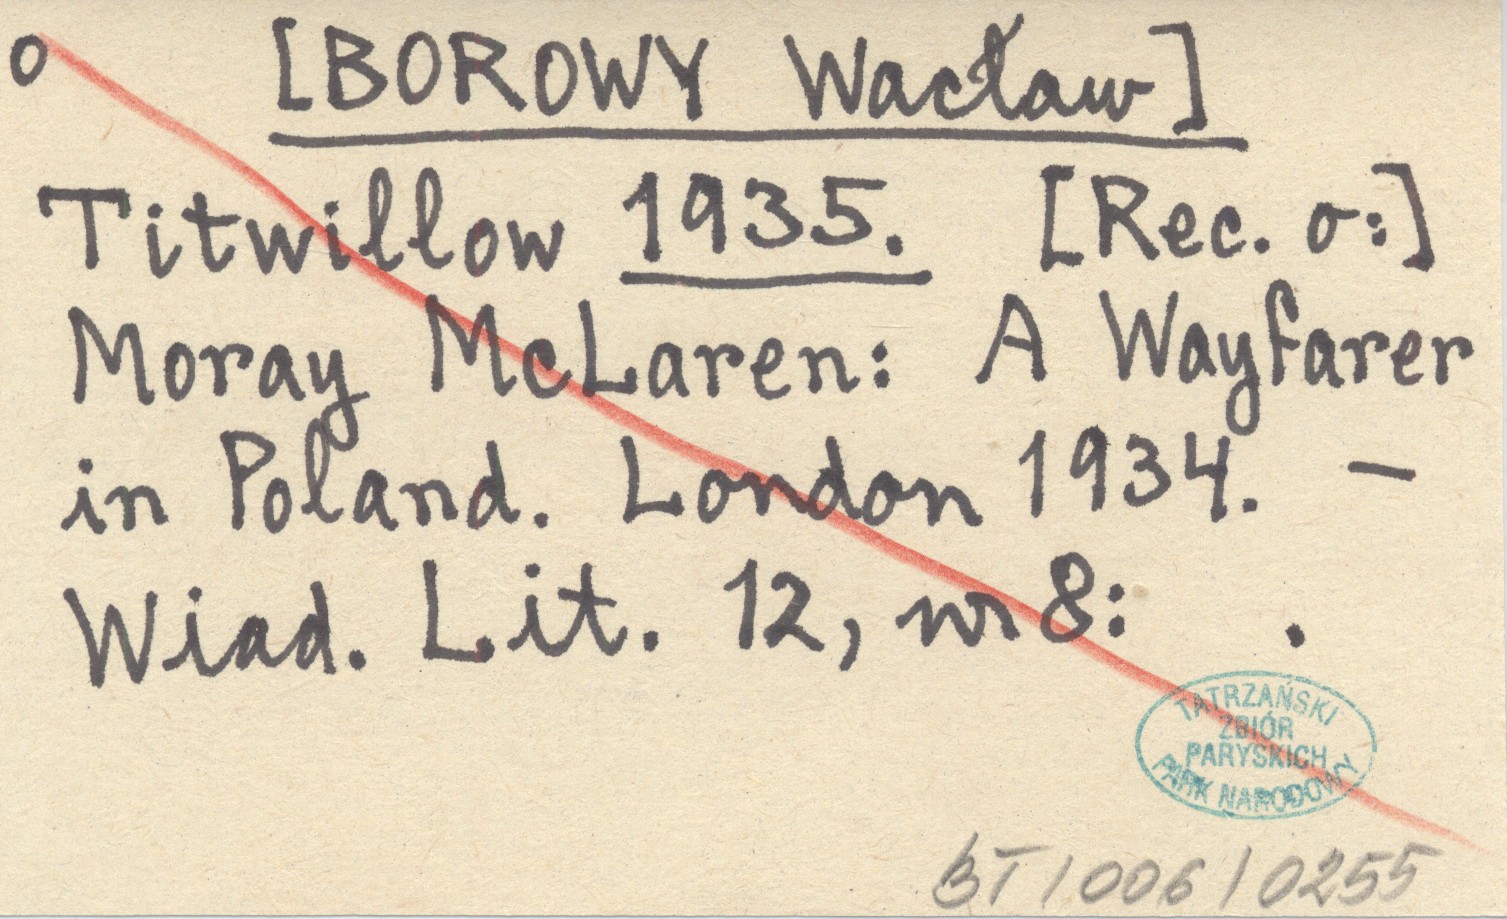 o [BOROWY Wacław]
Titwillow 1935. [Rec. o:]
Moray McLaren: A Wayfarer
in Poland. London 1934. —
Wiad. Lit. 12, nr 8: .
TATRZAŃSKI
ZBIÓR
PARYSKICH
PARK NARODOWY
BT/006/0255